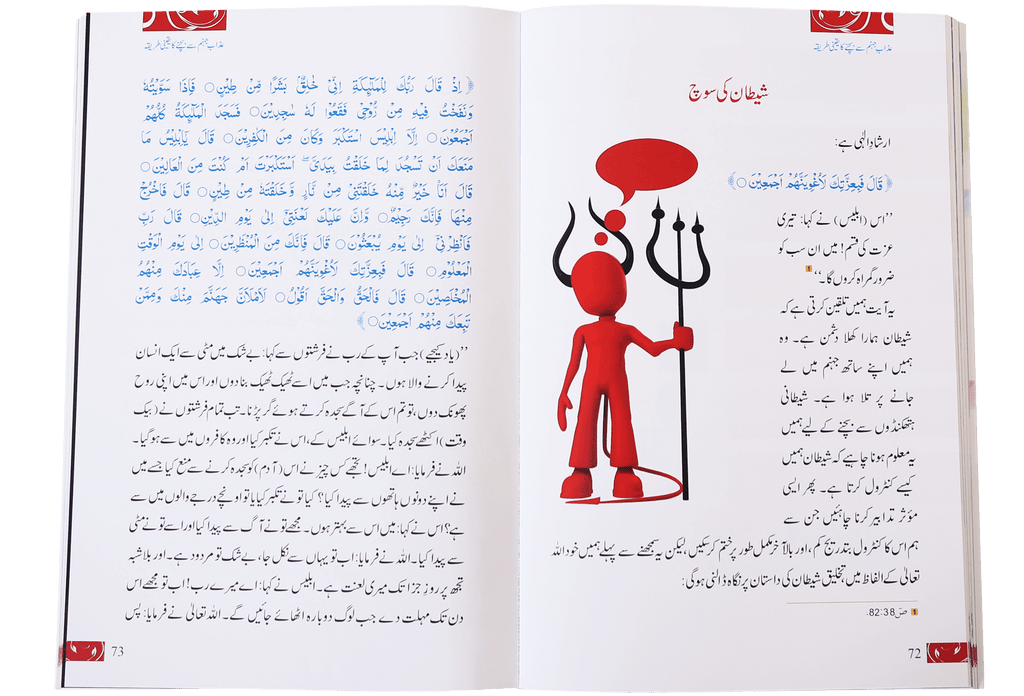 عذاب جہنم سے بچنے کا یقینی طریقہ
شیطان کی سوچ
ارشادِ الٰہی ہے:
﴿ قَالَ فَبِعِزَّتِكَ لَاُغْوِيَنَّهُمْ اَجْمَعِيْنَ○ ﴾
’’اس (ابلیس) نے کہا: تیری
عزت کی قسم! میں ان سب کو
ضرور گمراہ کروں گا۔‘‘ 1
یہ آیت ہمیں تلقین کرتی ہے کہ
شیطان ہمارا کھلا دشمن ہے۔ وہ
ہمیں اپنے ساتھ جہنم میں لے
جانے پر تلا ہوا ہے۔ شیطانی
ہتھکنڈوں سے بچنے کے لیے ہمیں
یہ معلوم ہونا چاہیے کہ شیطان ہمیں
کیسے کنٹرول کرتا ہے۔ پھر ایسی
مؤثر تدابیر کرنا چاہئیں جن سے
ہم اس کا کنٹرول بتدریج کم، اور بالآخر مکمل طور پر ختم کر سکیں، لیکن یہ سمجھنے سے پہلے ہمیں خود اللہ
تعالیٰ کے الفاظ میں، تخلیق شیطان کی داستان پر نگاہ ڈالنی ہوگی:
1 صٓ 82:38.
72
عذاب جہنم سے بچنے کا یقینی طریقہ
﴿ اِذْ قَالَ رَبُّكَ لِلْمَلٰٓىِٕكَةِ اِنِّيْ خَالِقٌۢ بَشَرًا مِّنْ طِيْنٍ○ فَاِذَا سَوَّيْتُهٗ
وَنَفَخْتُ فِيْهِ مِنْ رُّوْحِيْ فَقَعُوْا لَهٗ سٰجِدِيْنَ○ فَسَجَدَ الْمَلٰٓىِٕكَةُ كُلُّهُمْ
اَجْمَعُوْنَ○ اِلَّآ اِبْلِيْسَ اسْتَكْبَرَ وَكَانَ مِنَ الْكٰفِرِيْنَ○ قَالَ يٰٓاِبْلِيْسُ مَا
مَنَعَكَ اَنْ تَسْجُدَ لِمَا خَلَقْتُ بِيَدَيَّ ۖ اَسْتَكْبَرْتَ اَمْ كُنْتَ مِنَ الْعَالِيْنَ○
قَالَ اَنَا خَيْرٌ مِّنْهُ خَلَقْتَنِيْ مِنْ نَّارٍ وَّخَلَقْتَهٗ مِنْ طِيْنٍ○ قَالَ فَاخْرُجْ
مِنْهَا فَاِنَّكَ رَجِيْمٌ○ وَّاِنَّ عَلَيْكَ لَعْنَتِيْٓ اِلٰى يَوْمِ الدِّيْنِ○ قَالَ رَبِّ
فَاَنْظِرْنِيْٓ اِلٰى يَوْمِ يُبْعَثُوْنَ○ قَالَ فَاِنَّكَ مِنَ الْمُنْظَرِيْنَ○ اِلٰى يَوْمِ الْوَقْتِ
الْمَعْلُوْمِ○ قَالَ فَبِعِزَّتِكَ لَاُغْوِيَنَّهُمْ اَجْمَعِيْنَ○ اِلَّا عِبَادَكَ مِنْهُمُ
الْمُخْلَصِيْنَ○ قَالَ فَالْحَقُّ وَالْحَقَّ اَقُوْلُ○ لَاَمْلَـَٔنَّ جَهَنَّمَ مِنْكَ وَمِمَّنْ
تَبِعَكَ مِنْهُمْ اَجْمَعِيْنَ○ ﴾
’’(یاد کیجیے) جب آپ کے رب نے فرشتوں سے کہا: بے شک میں مٹی سے ایک انسان
پیدا کرنے والا ہوں۔ چنانچہ جب میں اسے ٹھیک ٹھیک بنا دوں اور اس میں اپنی روح
پھونک دوں، تو تم اس کے آگے سجدہ کرتے ہوئے گر پڑنا۔ تب تمام فرشتوں نے (بیک
وقت) اکٹھے سجدہ کیا۔ سوائے ابلیس کے، اس نے تکبر کیا اور وہ کافروں میں سے ہو گیا۔
اللہ نے فرمایا: اے ابلیس! تجھے کس چیز نے اس (آدم) کو سجدہ کرنے سے منع کیا جسے میں
نے اپنے دونوں ہاتھوں سے پیدا کیا؟ کیا تو نے تکبر کیا یا تو اونچے درجے والوں میں سے
ہے؟ اس نے کہا: میں اس سے بہتر ہوں۔ مجھے تو نے آگ سے پیدا کیا اور اسے تو نے مٹی
سے پیدا کیا۔ اللہ نے فرمایا: اب تو یہاں سے نکل جا، بے شک تو مردود ہے۔ اور بلاشبہ
تجھ پر روزِ جزا تک میری لعنت ہے۔ ابلیس نے کہا: اے میرے رب! اب تو مجھے اس
دن تک مہلت دے جب لوگ دوبارہ اٹھائے جائیں گے۔ اللہ تعالیٰ نے فرمایا: پس
73